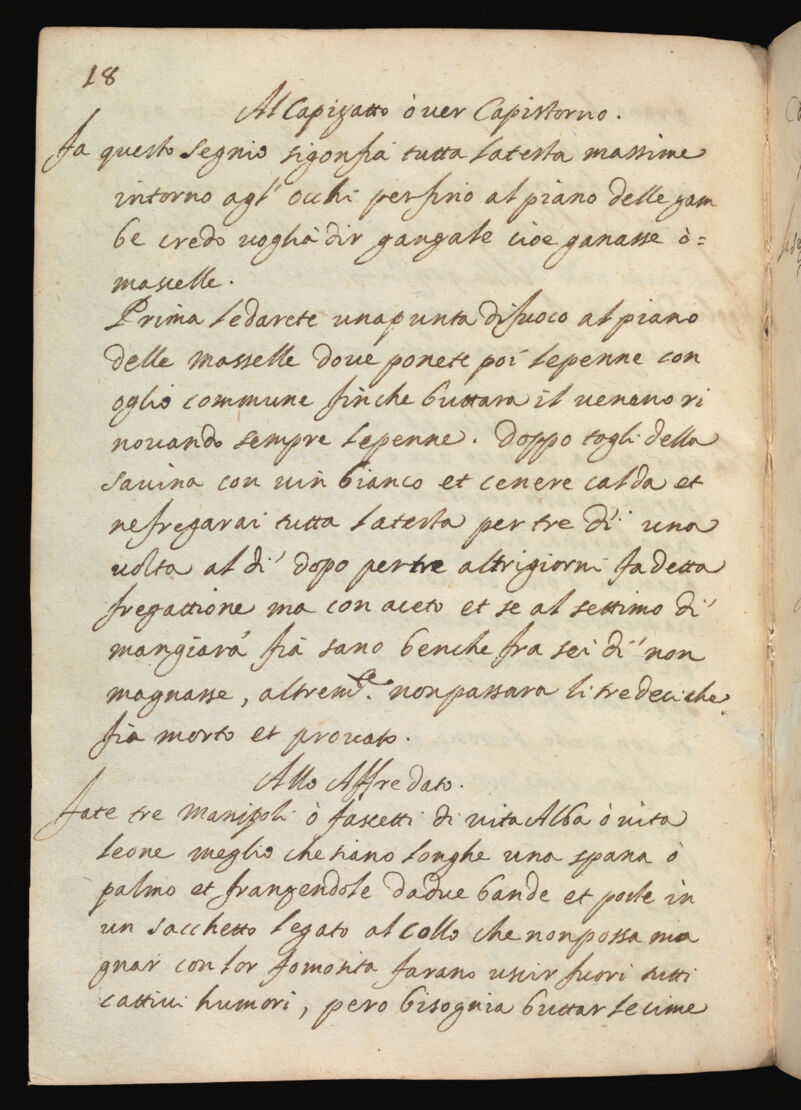 18
Al Capizatto ò ver Capistorno.
fa questo segnio sigonfia tutta latesta massime
intorno agl' occhi perfino al piano delle gam
be credo voglia dir gangale cioe ganasse ò=
mascelle.
Prima ledarete unapunta difuoco alpiano
delle masselle dove ponete poi lepenne con
oglio commune finche buttara il veneno ri
novando sempre lepenne. Doppo togli della
savina con vin bianco et cenere calda et
nefregarai tutta latesta per tre di una
volta al di' dopo pertre altrigiorni fa detta
fregattione ma con aceto et se al settimo di'
mangiara' fia sano benche fra sei di' non
magnasse, altrem.te non passara li tredeci che
fia morto et provato.
Allo Affredato.
fate tre manipoli ò fascetti di vita Alba ò vita
leone meglio che siano longhe una spana ò
palmo et frangendole dadue bande et poste in
un sacchetto legato al collo che nonpossa ma
gnar con lor fomosita farano uscir fuori tutti
cattivi humori, pero bisognia buttar lecime